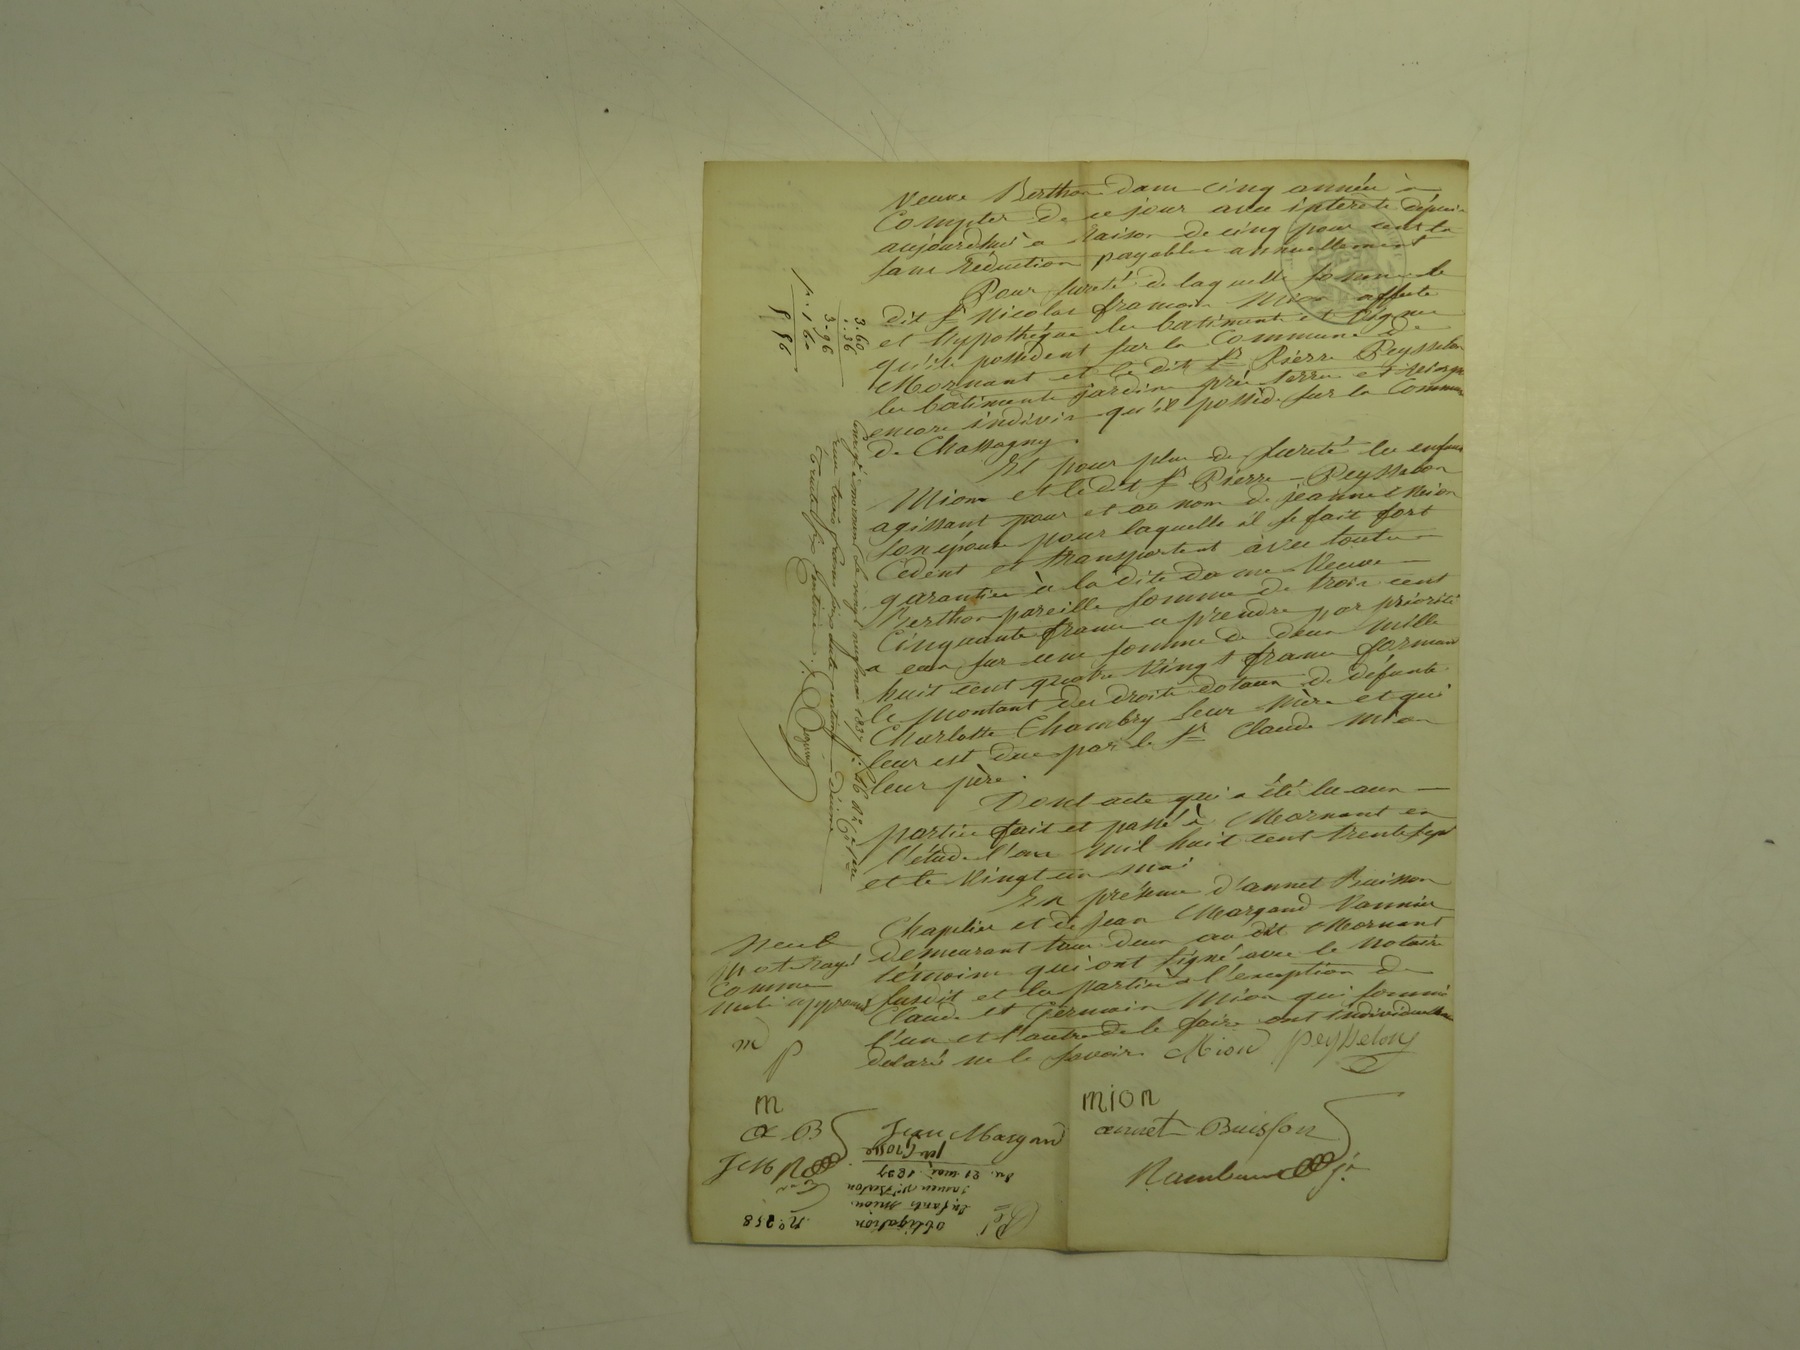 Veuve Berthon dans cinq années à
Compter de ce jour avec intérêts depuis
aujourd'hui à raison de cinq pour cent
sans réduction payables annuellement
Pour sureté de laquelle somme le
dit Sr Nicolas françois Mion affecte
et hypothèque les batiments et vignes
qu'ils possèdent sur la Commune de
Mornant et le dit Sr Pierre Peysselon
les bâtiments jardin prés terres et vignes
encore indivis qu'il possède sur la Commune
de Chassagny.
Et pour plus de sureté les enfans
Mion et le dit Sr Pierre Peysselon
agissant pour et au nom de jeanne Mion
son épouse pour laquelle il se fait fort
Cèdent et transportent avec toutes
garanties à la dite dame Veuve
Berthon pareille somme de trois cent
Cinquante francs a prendre par priorité
a eux sur une somme de deux mille
huit cent quatre vingt francs formant
le montant des droits dotaux de défunte
Charlotte Chambry leur mère et qui
leur est due par le Sr Claude Mion
leur père.
Dont acte qui a été lu aux
parties fait et passé à Mornant en
l'étude l'an mil huit cent trente sept
et le vingt un mai
En présence d'annet Buisson
Chapelier et de Jean Margand Vannier
demeurant tous deux au dit Mornant
témoins qui ont signé avec le notaire
susdit et les parties à l'exception de
Claude et Germain Mion qui sommés
l'un et l'autre de le faire ont individuellement
déclaré ne le savoir. Mion peysselon
mion
annet Buisson
Jean Margand
Rambaud je
3.60
..36
3.96
1.60
5.56
Enregistré à mornant le vingt neuf mai 1837
reçu trois francs soixante centimes décime
trente six centimes.
mot rayé
comme
nul approuvé
m
P
m
a B
J M R
Nº 258
obligation
Enfants mion.
Berton
du 21 mai 1837
per Grosse